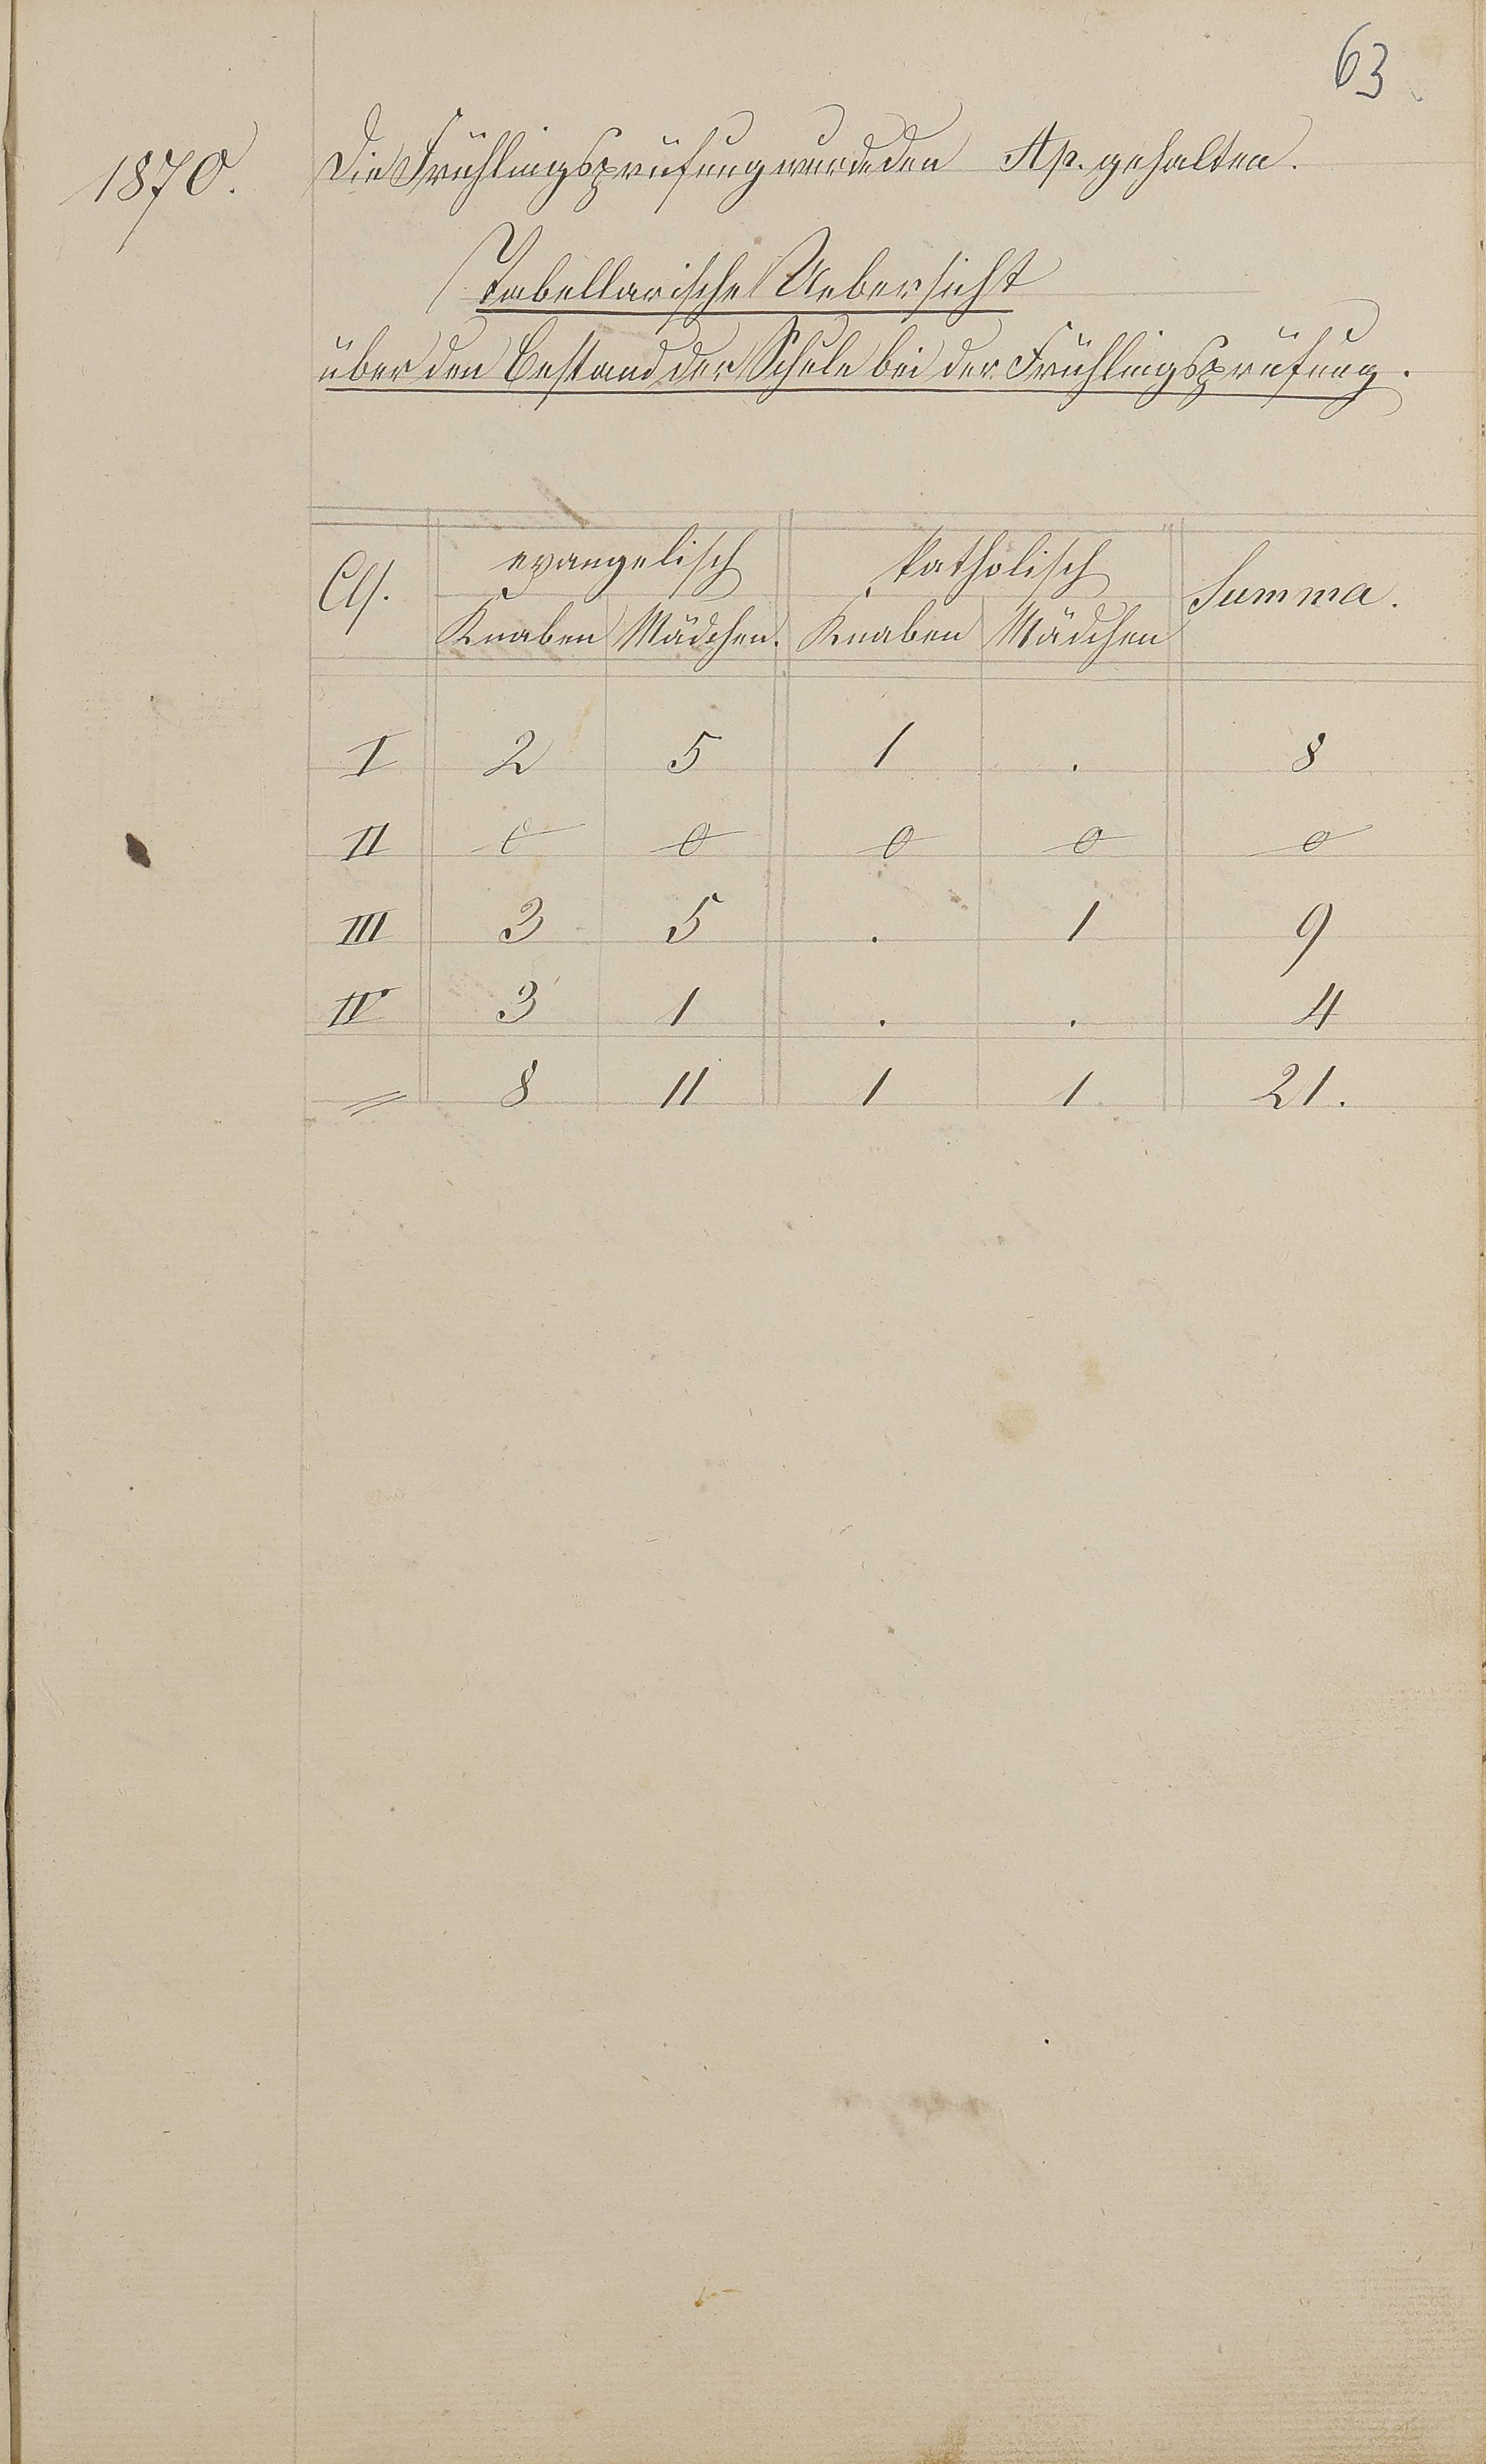 63
1870.
Die Frühlingsprüfung wurde den Ap. gehalten.
Tabellarische Uebersicht
über den Bestand der Schule bei der Frühlingsprüfung.
Cls. evangelisch katholisch Summa.
Knaben Mädchen. Knaben Mädchen
I 2 5 1 . 8
II 0 0 0 0 0
III 3 5 . 1 9
IV 3 1 . . 4
= 8 11 1 1 21.